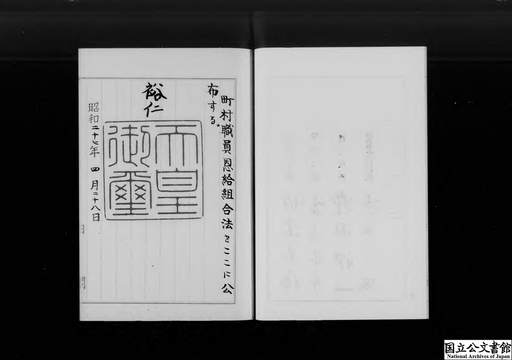 町村職員恩給組合法をここに公
布する。
裕仁
天皇
御璽
昭和二十七年四月二十八日
国立公文書館
National Archives of Japan